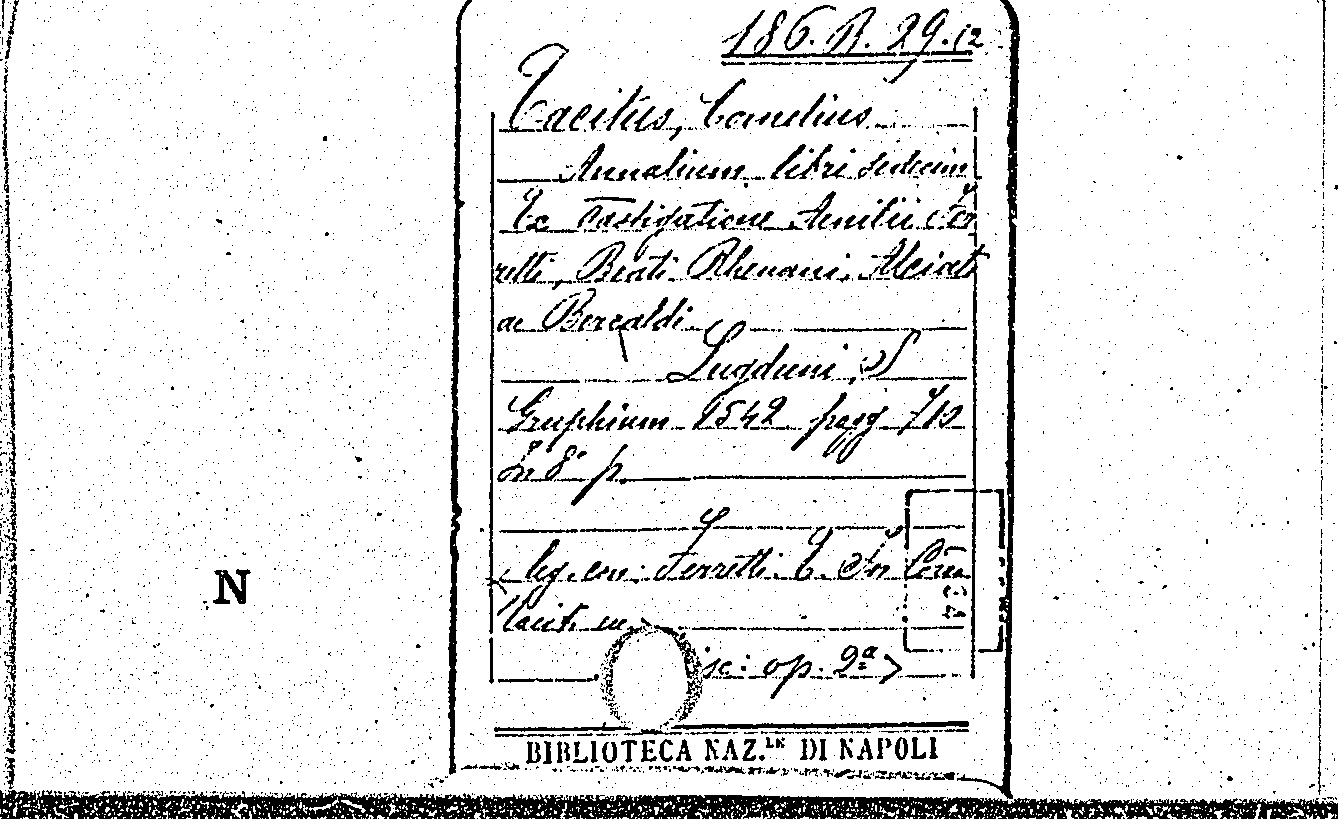 186. B. 29.12
Tacitus, Cornelius
Annalium libri sedecim
Ex Castigatione Aemilii Fer
retti, Beati Rhenani, Alciati
ac Beroaldi
Lugduni, S
Gryphium 1542 pagg 710
In 8° p.
leg. con: Ferretti. E. In Corn.
Tacit.
N
op. 2ª
BIBLIOTECA NAZ.LE DI NAPOLI